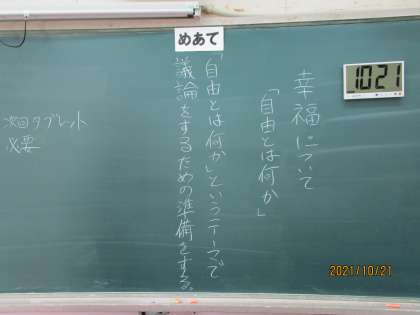 幸福について
「自由とは何か」
めあて
「自由とは何か」というテーマで
議論をするための準備をする。
次回タブレット
必要
10:21
2021/10/21